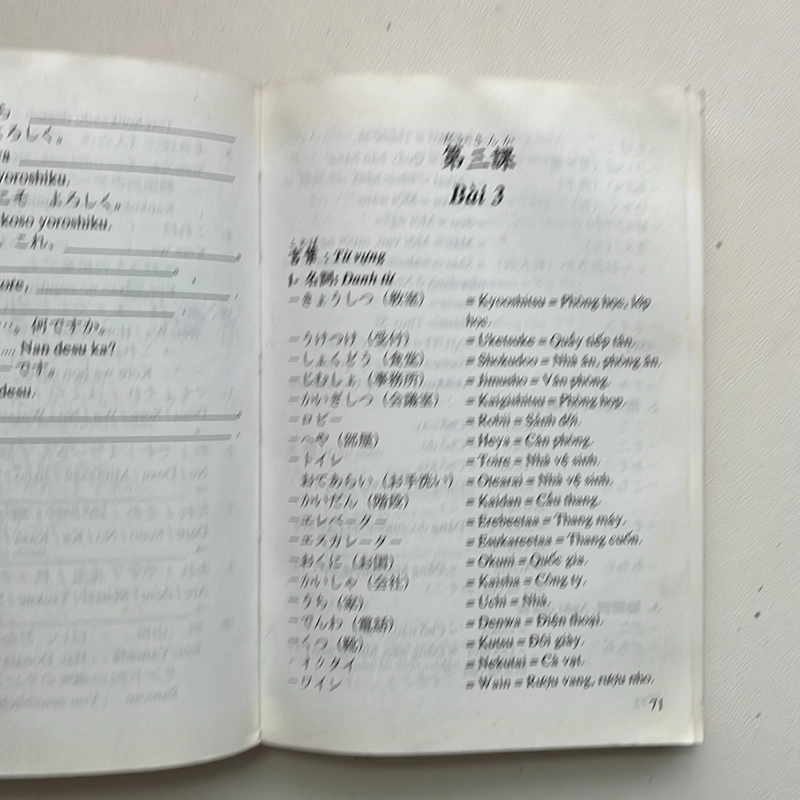 ろしく。
yoroshiku,
こそ よろしく。
koso yoroshiku.
これ、
ore,
何ですか。
Nan desu ka?
です。
desu.
だいさんか
第三課
Bài 3
ことば
言葉 : Từ vựng
1. 名詞: Danh từ
– きょうしつ (教室) = Kyooshitsu = Phòng học, lớp
học.
– うけつけ (受付) = Uketsuke = Quầy tiếp tân.
– しょくどう (食堂) = Shokudoo = Nhà ăn, phòng ăn.
– じむしょ (事務所) = Jimusho = Văn phòng.
– かいぎしつ (会議室) = Kaigishitsu = Phòng họp.
– ロビー = Robii = Sảnh đợi.
– へや (部屋) = Heya = Căn phòng.
– トイレ = Toire = Nhà vệ sinh.
おてあらい (お手洗い) = Otearai = Nhà vệ sinh.
– かいだん (階段) = Kaidan = Cầu thang.
– エレベーター = Erebeetaa = Thang máy.
– エスカレーター = Esukareetaa = Thang cuốn.
– おくに (お国) = Okuni = Quốc gia.
– かいしゃ (会社) = Kaisha = Công ty.
– うち (家) = Uchi = Nhà.
– でんわ (電話) = Denwa = Điện thoại.
– くつ (靴) = Kutsu = Đôi giày.
– ネクタイ = Nekutai = Cà vạt.
– ワイン = Wain = Rượu vang, rượu nho.
71